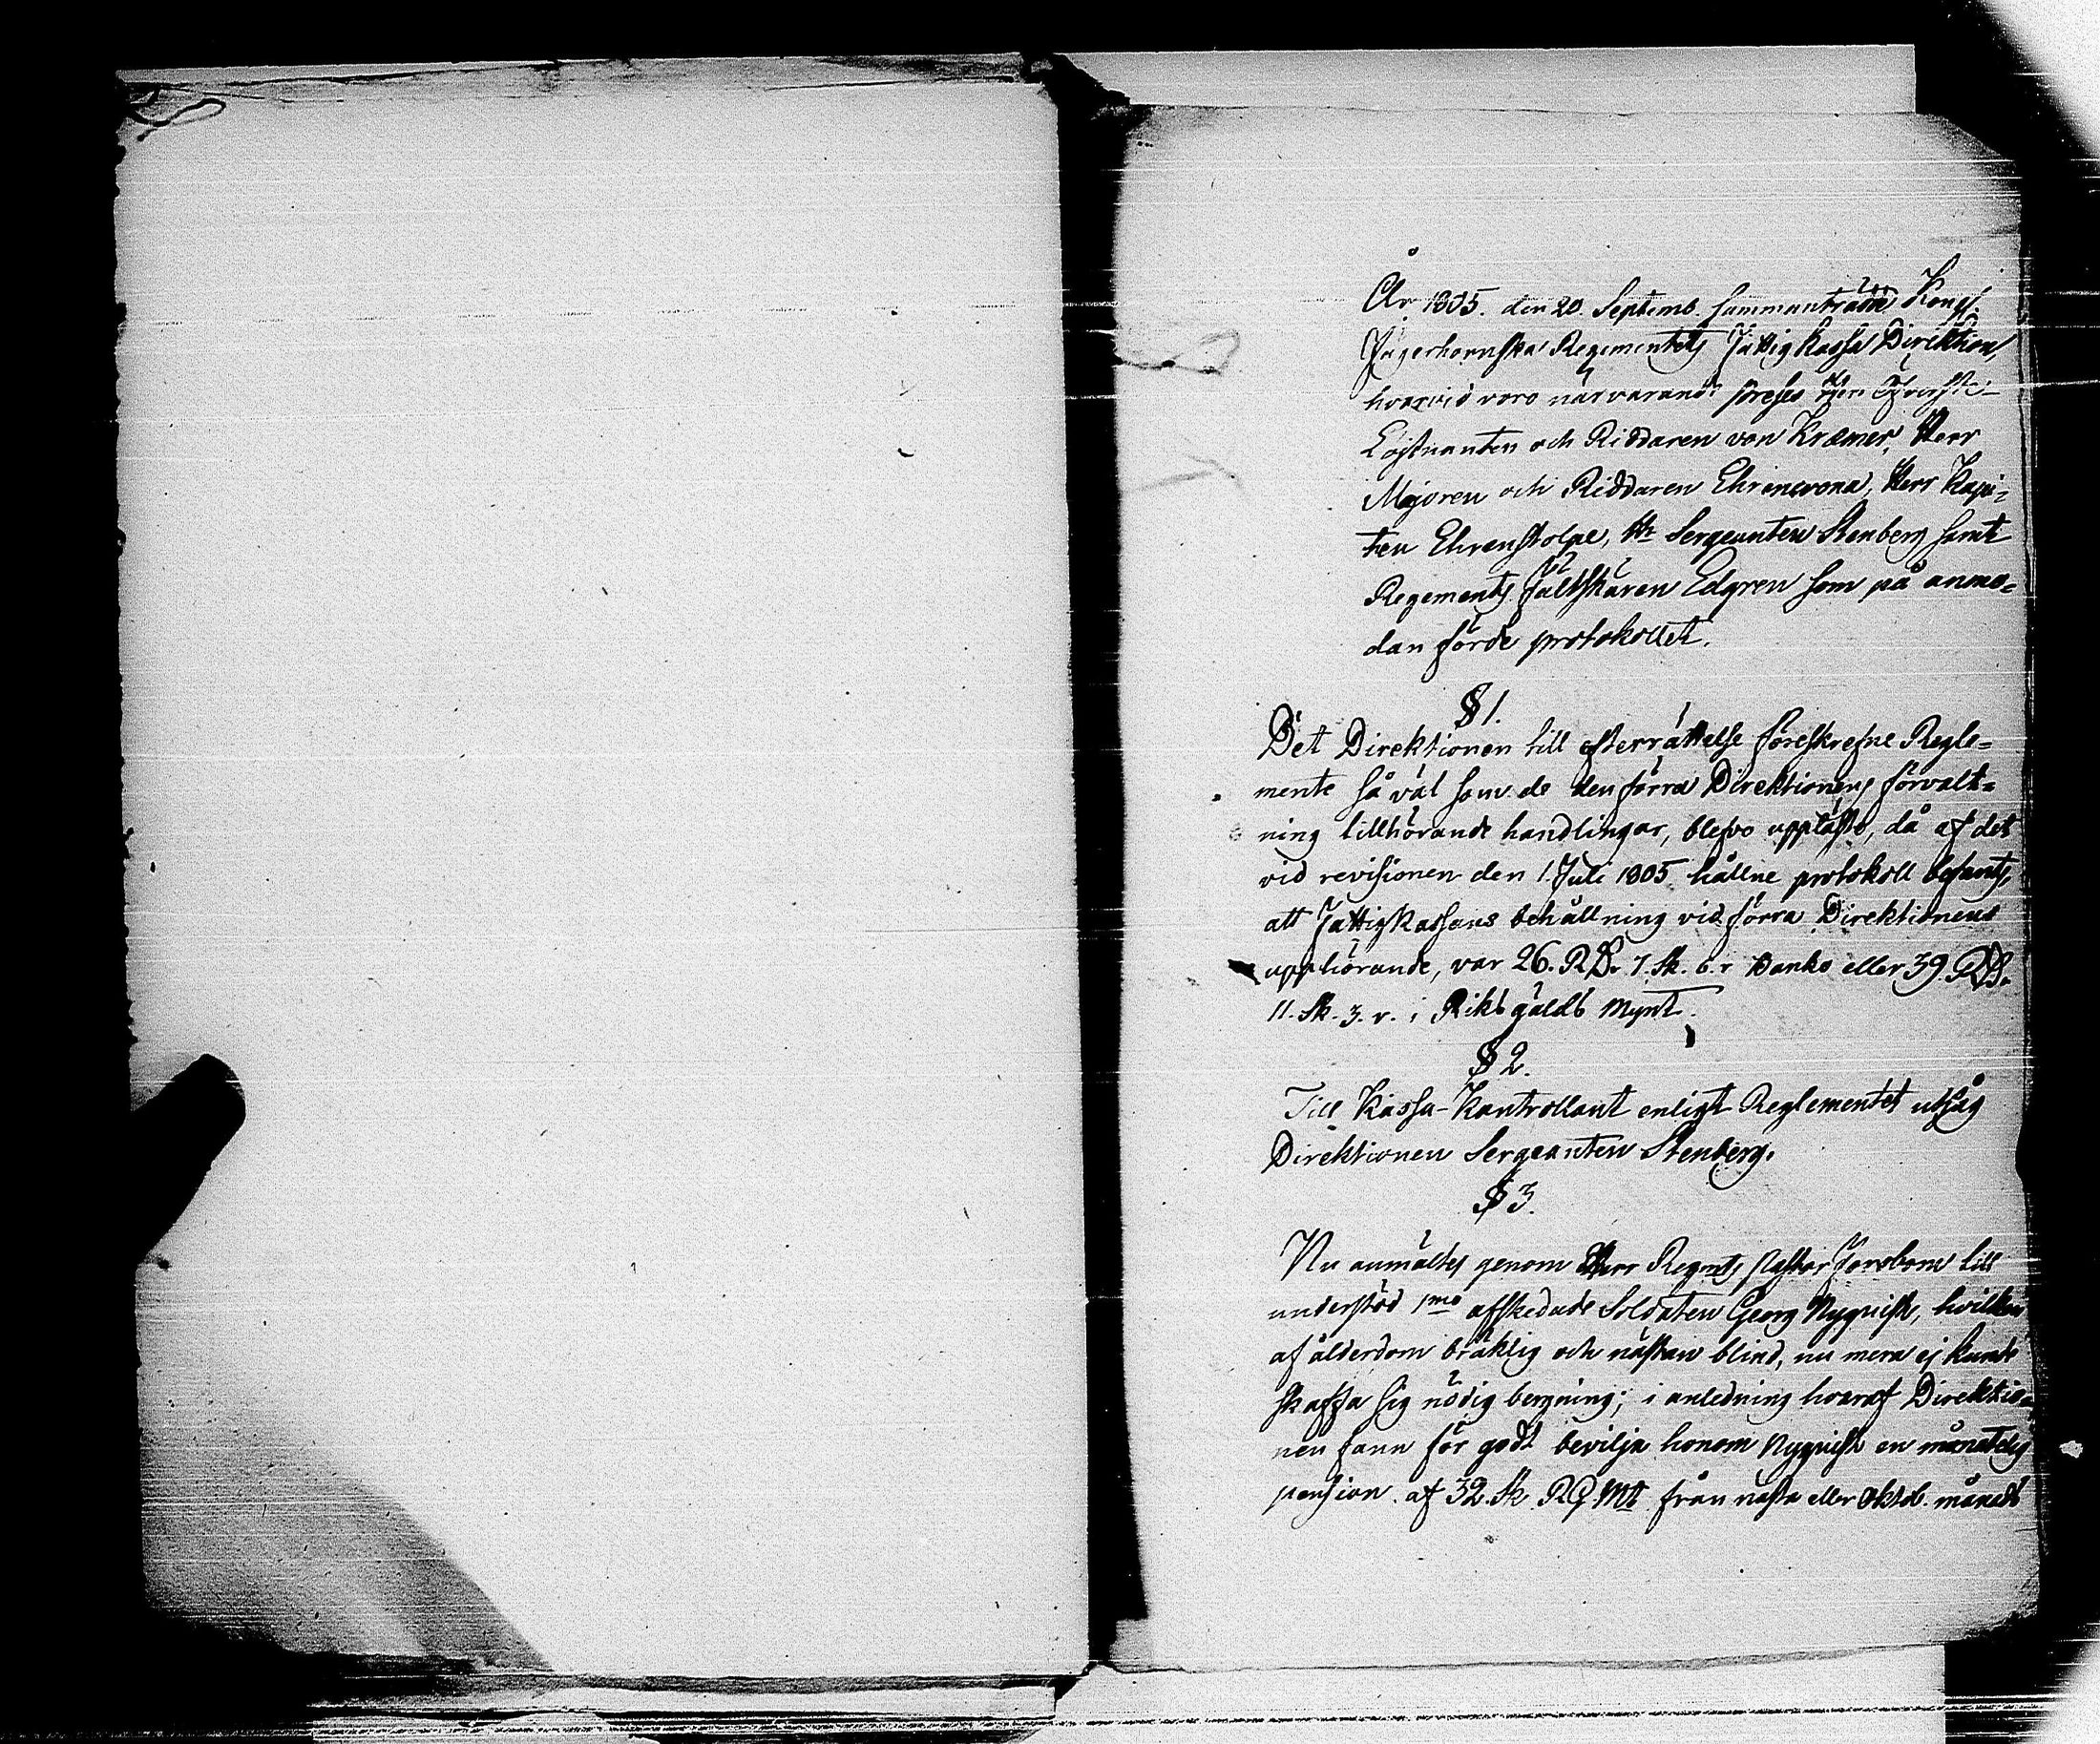 År 1805. den 20. Septemb. sammanträdde Kongl.
Jägerhornska Regementets Fattig Kassa Direktion,
hvarvid voro närvarande preses Herr Öfverste-
Löjtnanten och Riddaren von Kræmer, Herr
Majoren och Riddaren Ehrencrona, Herr Kapi=
ten Ehrenstolpe, Hr Sergeanten Stenberg samt
Regements Fältskären Edgren som på anmo=
dan förde protokollet.
§ 1.
Det Direktionen till efterrättelse föreskrefne Regle=
mente så väl som de den förra Direktionens förvalt=
ning tillhörande handlingar, blefvo uppläste, då af det
vid revisionen den 1. Juli 1805 hållne protokoll befants,
att Fattigkassans behållning vid förra Direktionens
upphörande, var 26. RD. 7. sk. 6. r Banko eller 39. RD.
11. sk. 3. r. i Riks gälds mynt.
§ 2.
Till Kassa-Kontrollant enligt Reglementet utsåg
Direktionen Sergeanten Stenberg.
§ 3.
Nu anmältes genom Herr Regmts Pastor Forsbom till
understöd 1mo afskedade Soldaten Georg Nyqvist, hvilken
af ålderdom bräklig och nästan blind, nu mera ej kunde
skaffa sig nödig bergning; i anledning hvaraf Direktio=
nen fann för godt bevilja honom Nyqvist en månatelig
pension af 32. sk RG Mt från nästa eller Oktob. månads